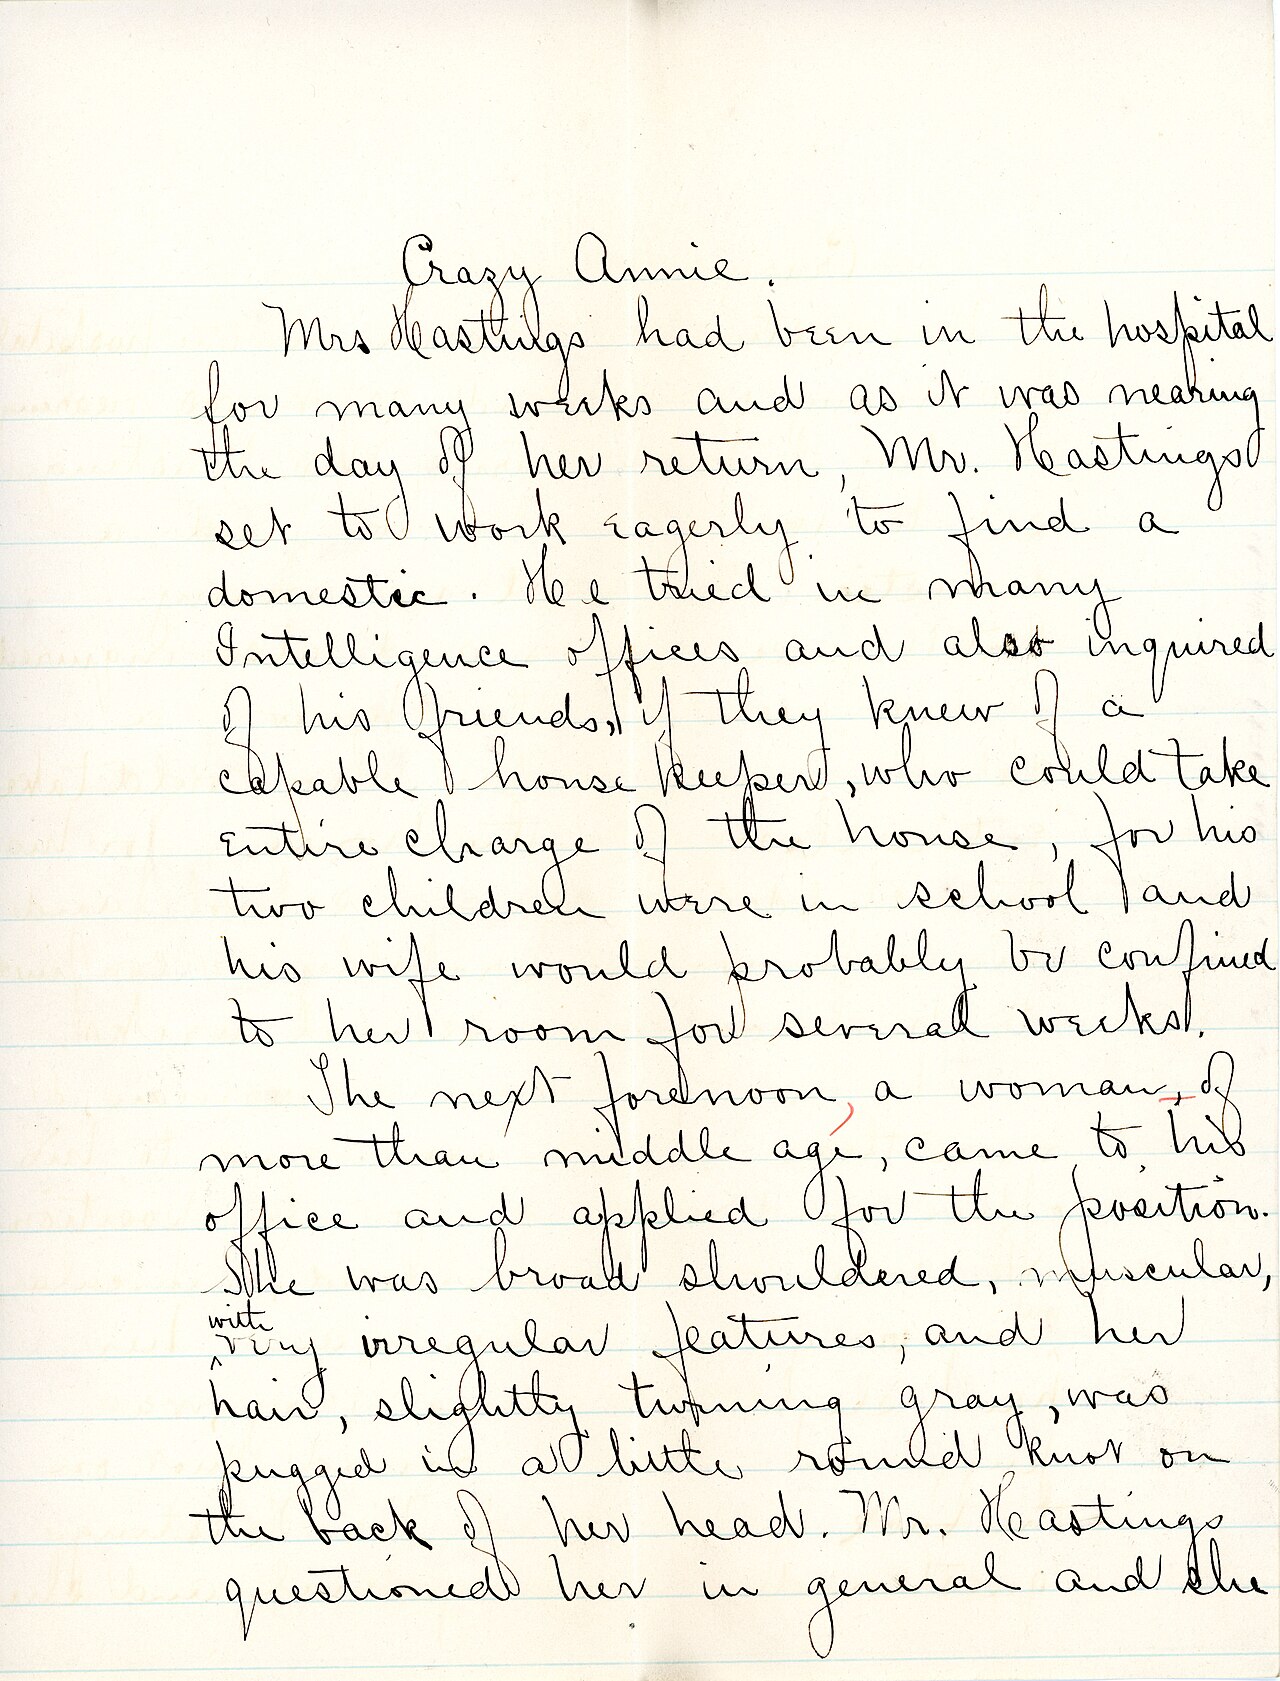 Crazy Annie.
Mrs Hastings had been in the hospital
for many weeks and as it was nearing
the day of her return, Mr. Hastings
set to work eagerly to find a
domestic. He tried in many
Intelligence offices and also inquired
of his friends, if they knew of a
capable house keeper, who could take
entire charge of the house, for his
two children were in school and
his wife would probably be confined
to her room for several weeks.
The next forenoon, a woman, of
more than middle age, came to his
office and applied for the position.
She was broad shouldered, muscular,
with
very irregular features, and her
hair, slightly turning gray, was
pugged in a little round knot on
the back of her head. Mr. Hastings
questioned her in general and she